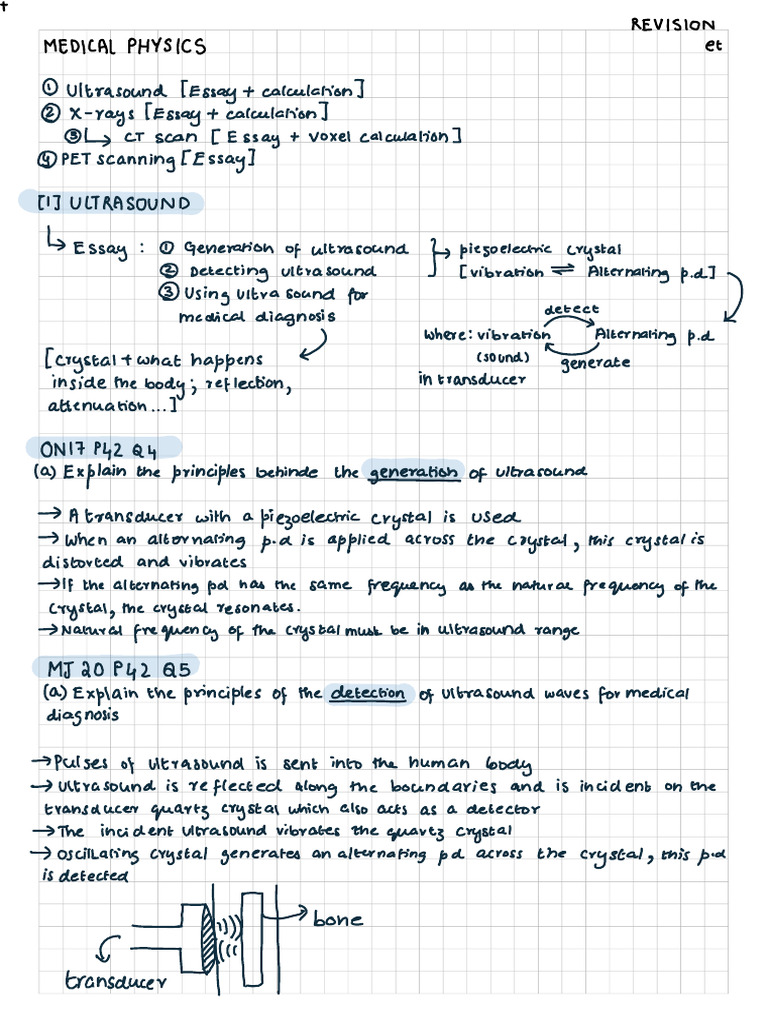 t
REVISION
MEDICAL PHYSICS et
① Ultrasound [Essay + calculation]
② X-rays [Essay + calculation]
③ ↳ CT scan [Essay + voxel calculation]
④ PET scanning [Essay]
[1] ULTRASOUND
↳ Essay : ① Generation of ultrasound } → piezoelectric crystal
② Detecting ultrasound [vibration ⇌ Alternating p.d]
③ Using ultra sound for
medical diagnosis
detect
where: vibration Alternating p.d
(sound) generate
in transducer
[crystal + what happens
inside the body; reflection,
attenuation...]
ON17 P42 Q4
(a) Explain the principles behinde the generation of ultrasound
→ A transducer with a piezoelectric crystal is used
→ When an alternating p.d is applied across the crystal, this crystal is
distorted and vibrates
→ If the alternating pd has the same frequency as the natural frequency of the
crystal, the crystal resonates.
→ Natural frequency of the crystal must be in ultrasound range
MJ 20 P42 Q5
(a) Explain the principles of the detection of ultrasound waves for medical
diagnosis
→ Pulses of ultrasound is sent into the human body
→ Ultrasound is reflected along the boundaries and is incident on the
transducer quartz crystal which also acts as a detector
→ The incident ultrasound vibrates the quartz crystal
→ oscillating crystal generates an alternating pd across the crystal, this p.d
is detected
bone
transducer